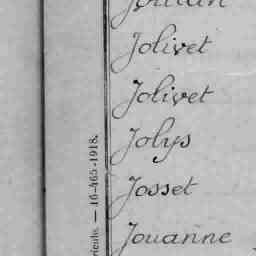 Jolivet
Jolivet
Jolys
Josset
Jouanne
— 16-465-1918.